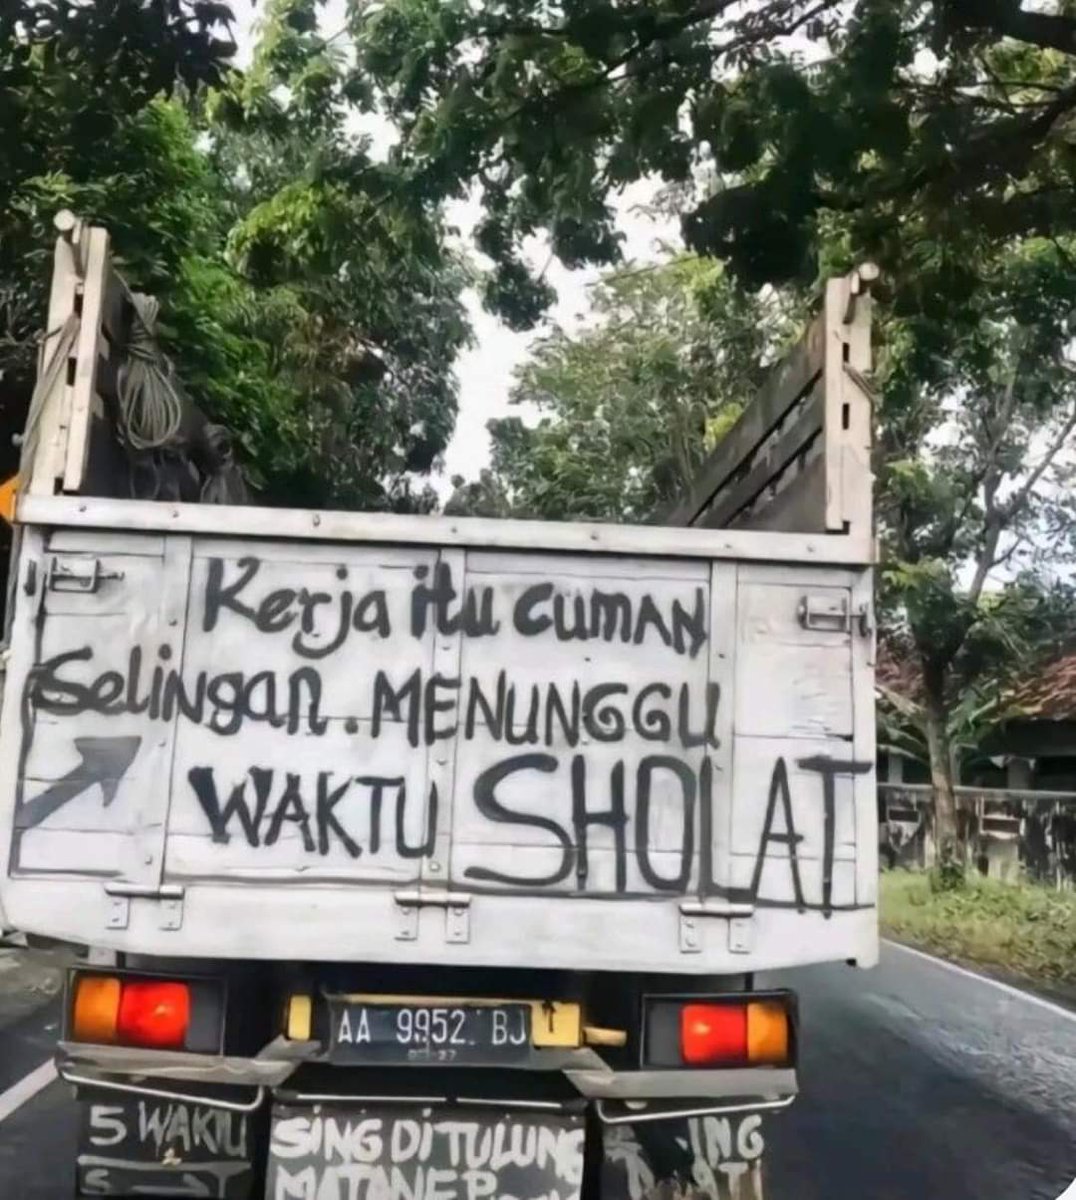 Kerja itu CUMAN
Selingan. MENUNGGU
WAKTU SHOLAT
AA 9952 BJ
5 WAKTU
SING DI TULUNG